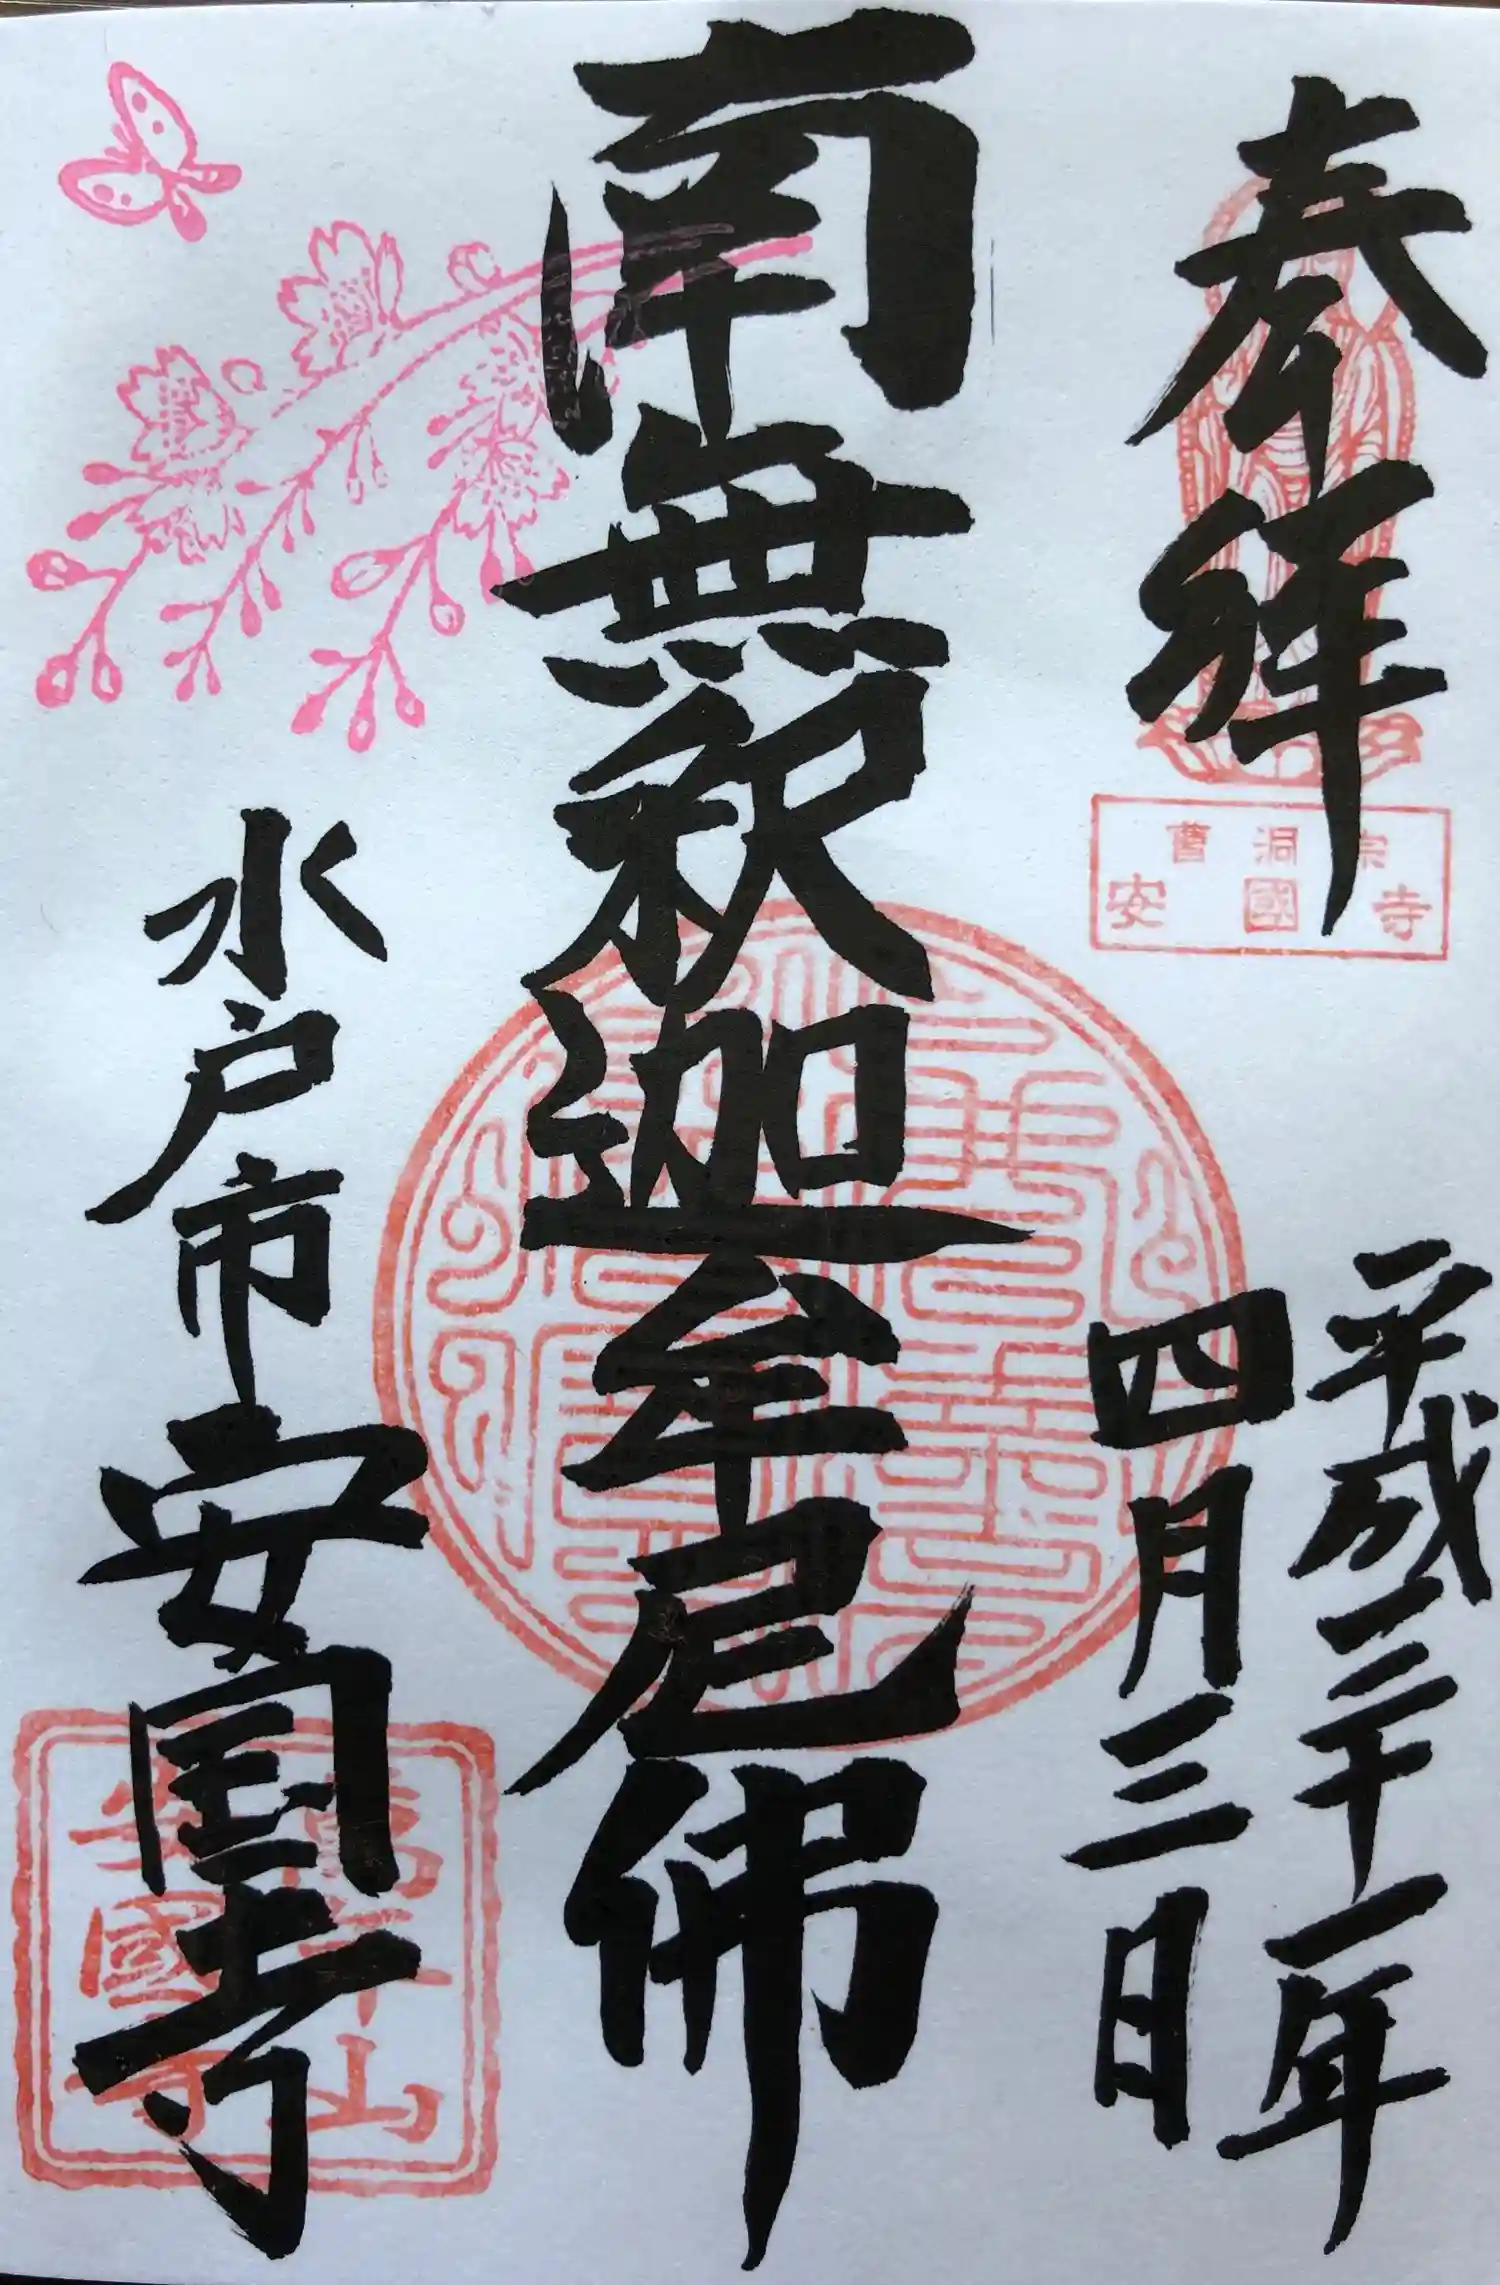 奉拝
曹洞宗
安國寺
平成三十一年
四月三日
南無釈迦牟尼佛
水戸市安国寺
山
安國寺